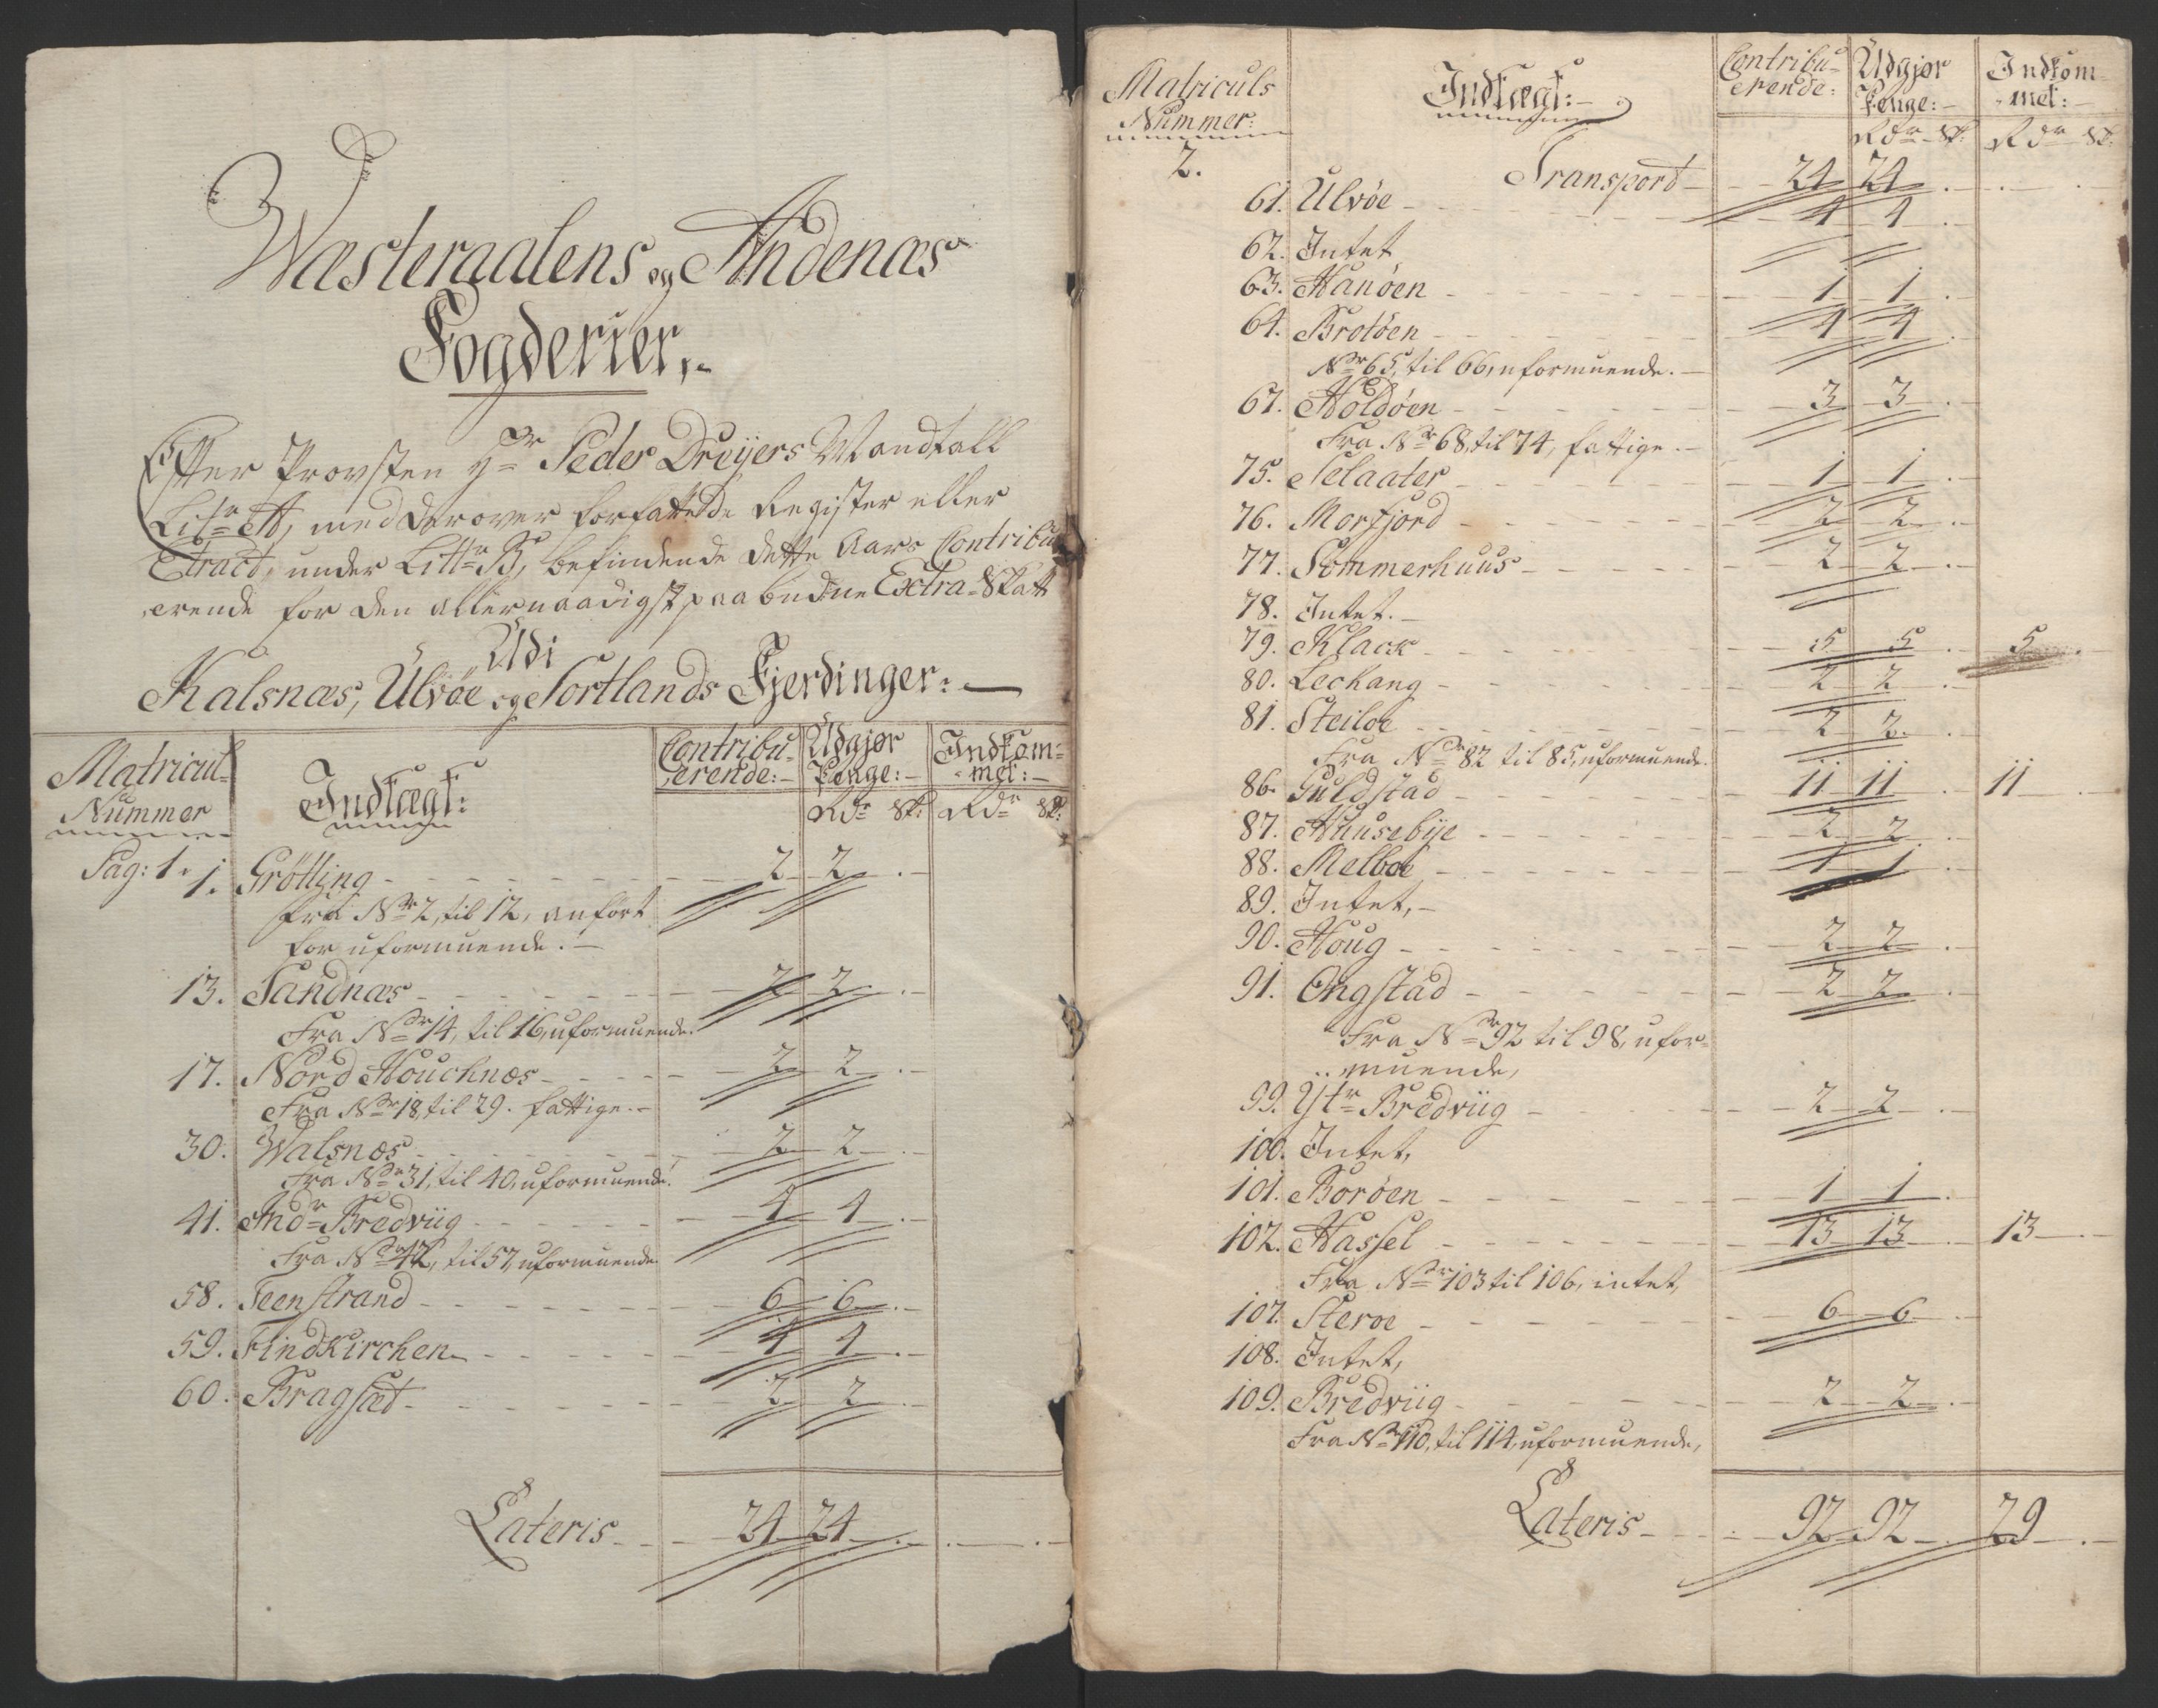 Wæsteraalens og Andenæs
Fogderier,
Efter Provsten Hr Peder Dreÿers Mandtall
Litr A, med derover forfattede Register eller
Extract, under Littr B, befindende dette Aars Contribu
erende for den allernaadigst paabudne Extra-Skatt
Udi
Kalsnæs, Ulvöe og Sortlands Fjerdinger:
Matricul Nummer | Indtægt: | Contribu-erende: | Udgjør Penge: Rdr sk: | Indkom-met: Rdr sk:
Pag: 1. 1. Grötting 2 2
Fra Nr 2, til 12, anfört
for uformuende.
13. Sandnæs 2 2
Fra Nr 14, til 16, uformuende.
17. Nord Houchnæs 2 2
Fra Nr 18, til 29. fattige.
30. Walsnæs 2 2
Fra Nr 31, til 40, uformuende.
41. Indr Bredviig 4 4
Fra Nr 42, til 57, uformuende
58. Teenstrand 6 6
59. Findkirchen 4 4
60. Bragsæt 2 2
Lateris 24 24
Matriculs Nummer: | Indtægt: | Contribu-erende: | Udgjør Penge: Rdr sk: | Indkom-met: Rdr sk:
2. Transport 24 24
61. Ulvöe 4 4
62. Intet
63. Hanöen 1 1
64. Brotöen 4 4
Nr 65, til 66, uformuende.
67. Holdöen 3 3
Fra Nr 68, til 74, fattige.
75. Selaater 1 1
76. Morfjord 2 2
77. Sommerhuus 2 2
78. Intet.
79. Klack 5 5 5
80. Leckang 2 2
81. Steiloe 2 2
Fra Nr 82 til 85, uformuende.
86. Guldstad 11 11 11
87. Huusebÿe 2 2
88. Melboe 1 1
89. Intet,
90. Houg 2 2
91. Ongstad 2 2
Fra Nr 92 til 98, ufor-
muende,
99. Ytr Bredviig 2 2
100. Intet,
101. Boröen 1 1
102. Hassel 13 13 13
Fra Nr 103 til 106, intet,
107. Steroe 6 6
108. Intet,
109. Bredviig 2 2
Fra Nr 110, til 114, uformuende,
Lateris 92 92 29